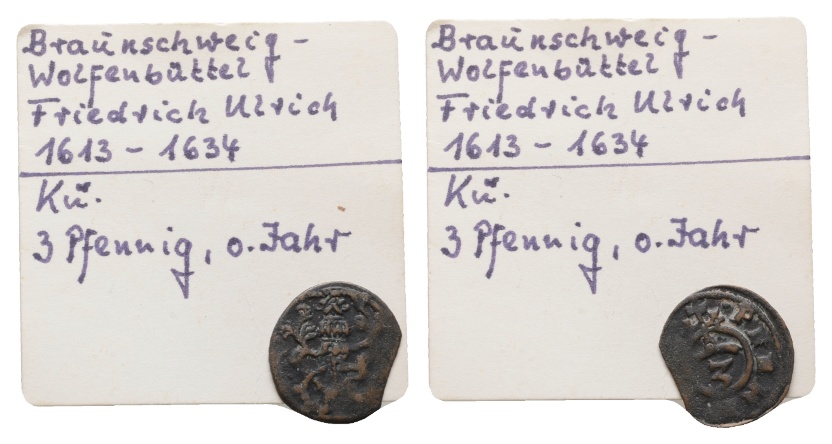 Braunschweig -
Wolfenbüttel
Friedrich Ulrich
1613 - 1634
Kü.
3 Pfennig, o. Jahr
Braunschweig -
Wolfenbüttel
Friedrich Ulrich
1613 - 1634
Kü.
3 Pfennig, o. Jahr
3